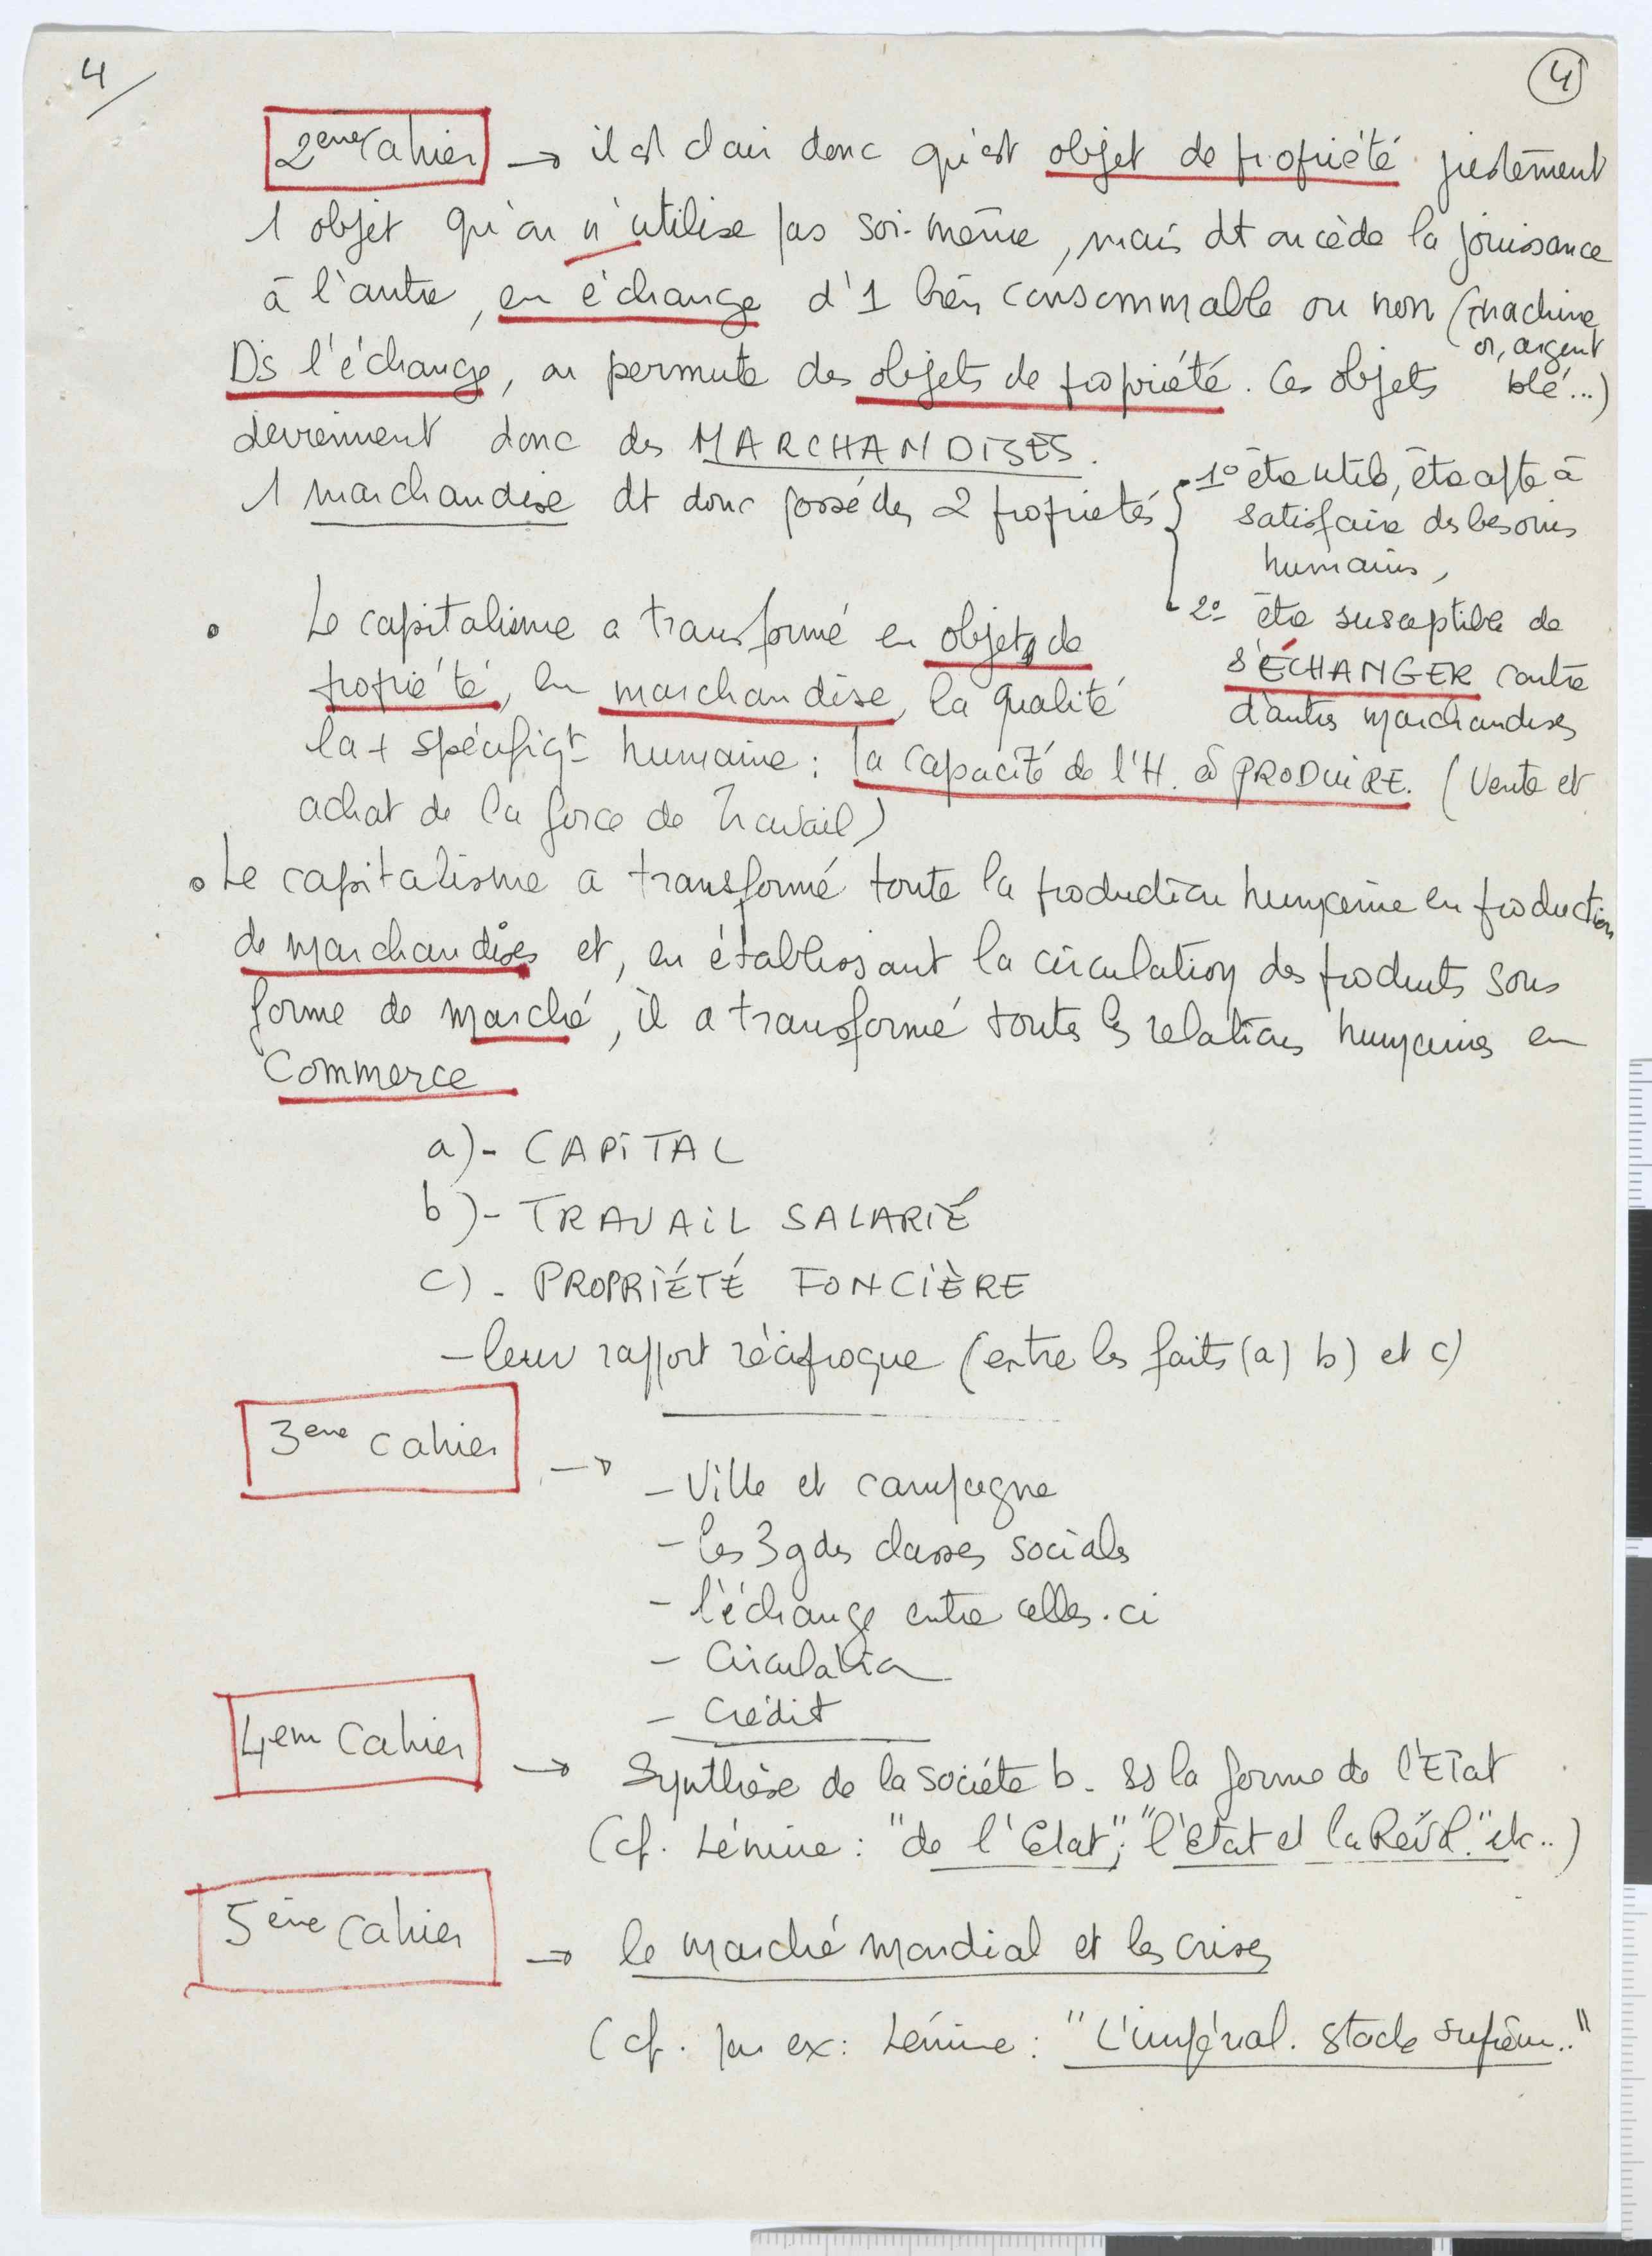 4
4
2ème Cahier → il est clair donc qu'est objet de propriété justement
1 objet qu'on n'utilise pas soi-même, mais dt on cède la jouissance
à l'autre, en échange d'1 bien consommable ou non (machine,
or, argent
blé...)
Ds l'échange, on permute des objets de propriété. Ces objets
deviennent donc des MARCHANDISES.
1 marchandise dt donc posséder 2 propriétés
1° être utile, être apte à
satisfaire des besoins
humains,
2° être susceptible de
S'ÉCHANGER contre
d'autres marchandises
• Le capitalisme a transformé en objet de
propriété, en marchandise, la qualité
la + spécifiqt humaine : la capacité de l'H. à PRODUIRE. (Vente et
achat de la force de Travail)
• Le capitalisme a transformé toute la production humaine en production
de marchandises et, en établissant la circulation des produits sous
forme de marché, il a transformé toutes ls relations humaines en
Commerce
a)- CAPITAL
b)- TRAVAIL SALARIÉ
c)- PROPRIÉTÉ FONCIÈRE
- leur rapport réciproque (entre les faits (a) b) et c)
3eme cahier →
- Ville et campagne
- les 3 gdes classes sociales
- l'échange entre celles-ci
- Circulation
- Crédit
4em Cahier → Synthèse de la société b. ss la forme de l'ETat
(cf. Lénine : "de l'Etat", "l'Etat et la Révol." etc..)
5ème Cahier → le marché mondial et les crises
(cf. par ex: Lénine : "L'impérial. stade suprêm.."